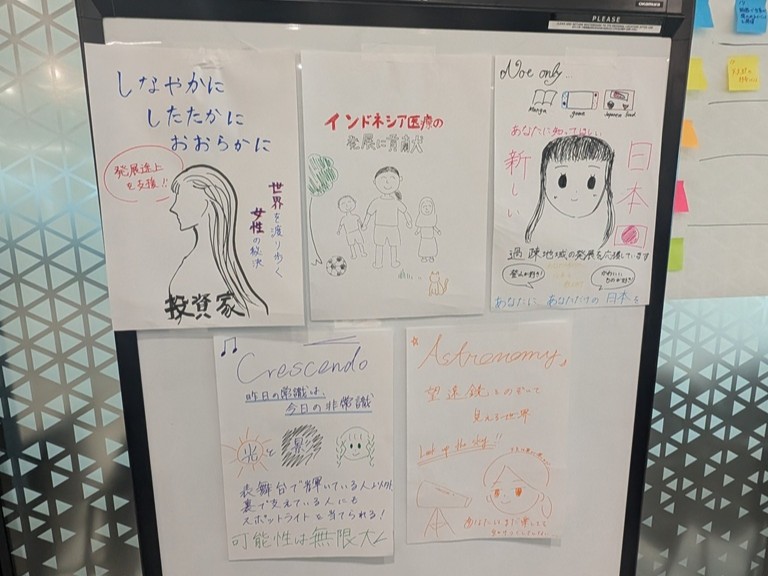 PLEASE
しなやかに
したたかに
おおらかに
発展途上
を支援!!
世界を渡り歩く
女性の秘訣
投資家
インドネシア医療の
発展に貢献
Not only...
manga
game
Japanese food
あなたに知ってほしい
新しい
日本
過疎地域の発展を応援しています
あなたに あなただけの 日本を
Crescendo
昨日の常識は、
今日の非常識
光と影
表舞台で輝いている人以外
裏で支えている人にも
スポットライトを当てられる!
可能性は無限大
Astronomy
望遠鏡をのぞいて
見える世界